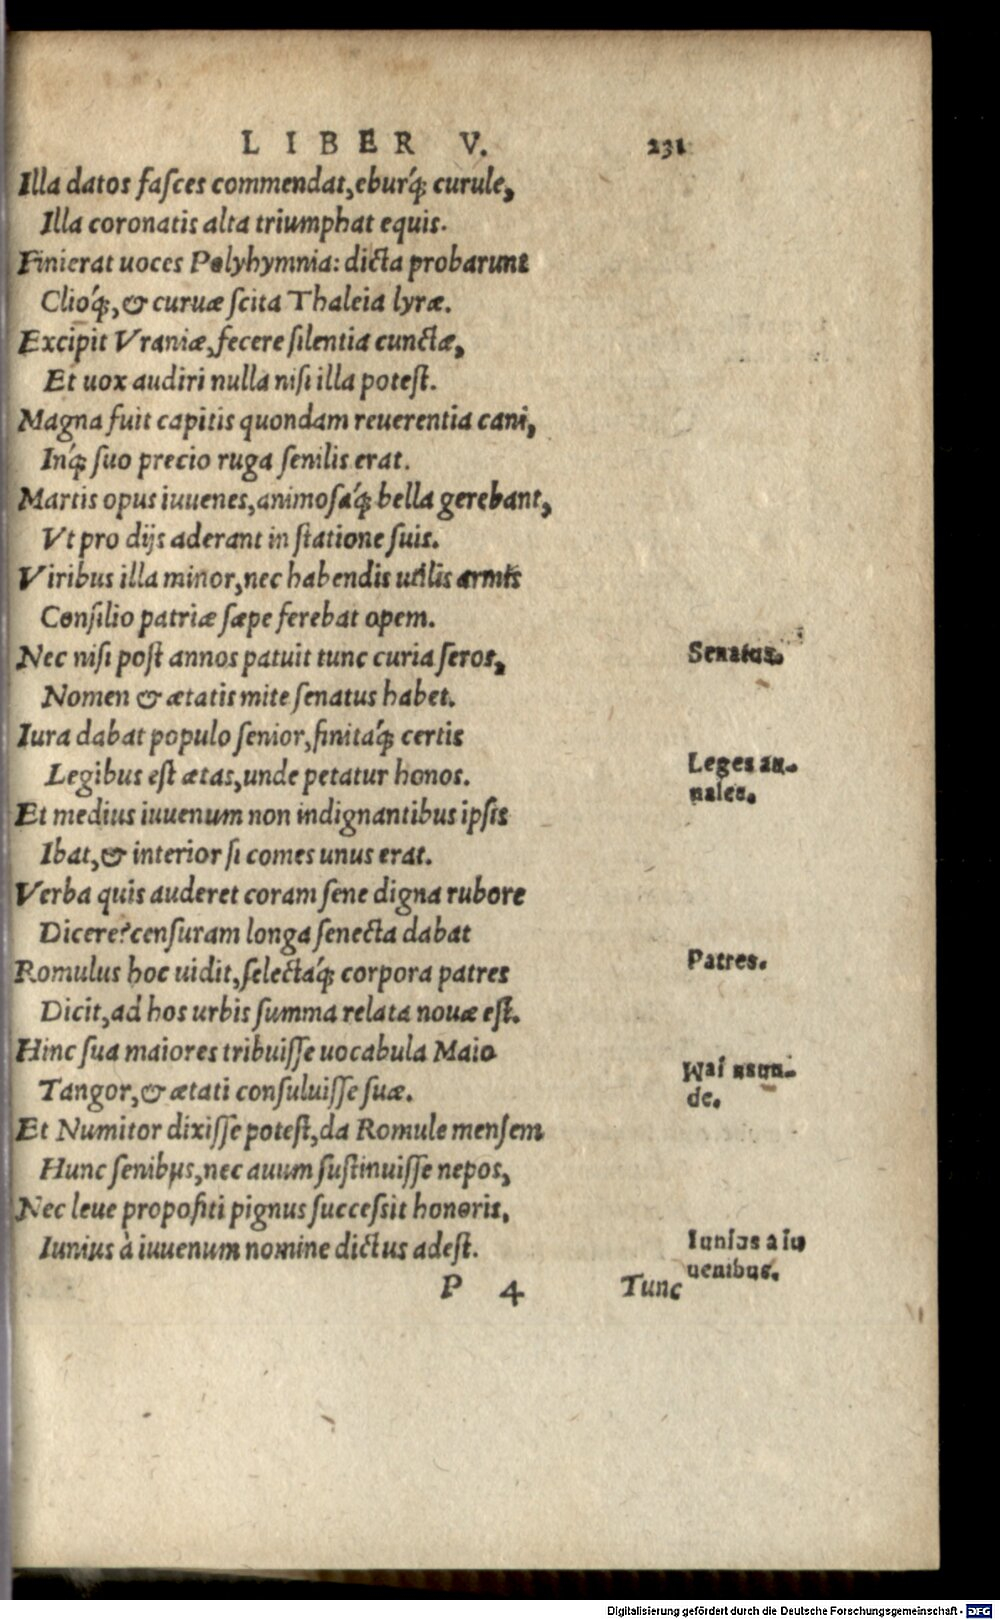 LIBER V. 231
Illa datos faſces commendat, eburq́; curule,
Illa coronatis alta triumphat equis.
Finierat uoces Polyhymnia: dicta probarunt
Clioq́;, & curuæ ſcita Thaleia lyræ.
Excipit Vraniæ, fecere ſilentia cunctæ,
Et uox audiri nulla niſi illa poteſt.
Magna fuit capitis quondam reuerentia cani,
Inq́; ſuo precio ruga ſenilis erat.
Martis opus iuuenes, animoſaq́; bella gerebant,
Vt pro dijs aderant in ſtatione ſuis.
Viribus illa minor, nec habendis utilis armis
Conſilio patriæ ſæpe ferebat opem.
Nec niſi poſt annos patuit tunc curia ſeros,
Senatus.
Nomen & ætatis mite ſenatus habet.
Iura dabat populo ſenior, finitaq́; certis
Legibus eſt ætas, unde petatur honos.
Leges an-
nales.
Et medius iuuenum non indignantibus ipſis
Ibat, & interior ſi comes unus erat.
Verba quis auderet coram ſene digna rubore
Dicere? cenſuram longa ſenecta dabat
Romulus hoc uidit, ſelectaq́; corpora patres
Patres.
Dicit, ad hos urbis ſumma relata nouæ eſt.
Hinc ſua maiores tribuiſſe uocabula Maio
Tangor, & ætati conſuluiſſe ſuæ.
de.
Et Numitor dixiſſe poteſt, da Romule menſem
Hunc ſenibus, nec auum ſuſtinuiſſe nepos,
Nec leue propoſiti pignus ſucceſsit honoris,
Iunius à iuuenum nomine dictus adeſt.
Iunius a iu
uenibus.
P 4 Tunc
Digitalisierung gefördert durch die Deutsche Forschungsgemeinschaft - DFG